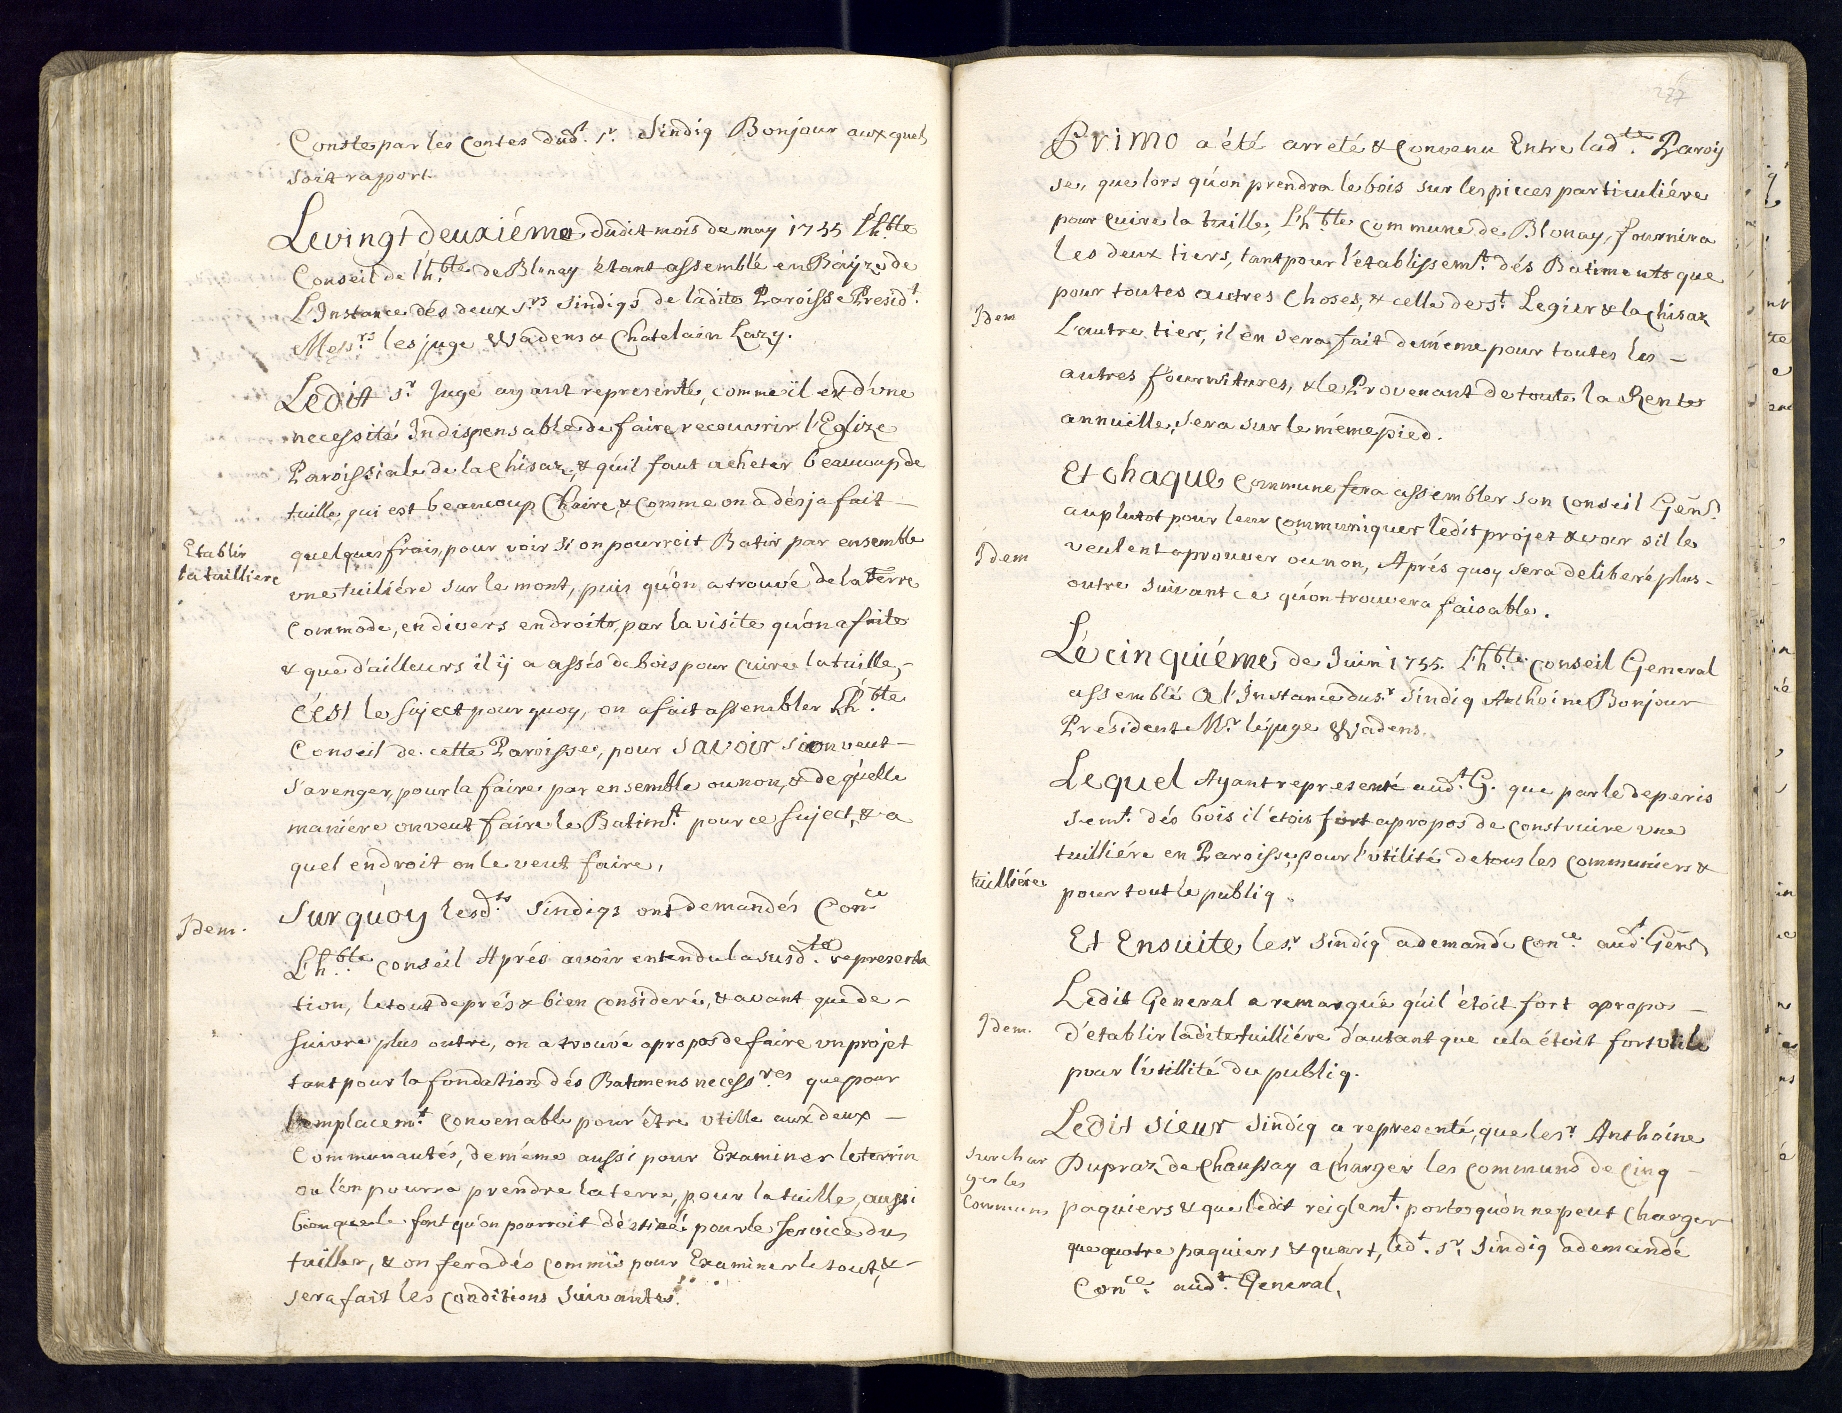 Conste par les Contes dud.t S.r Sindiq Bonjour auxquels
soit raport.
Le vingt deuxiéme dudit mois de may 1755 l'h.ble
Conseil de l'h.ble de Blonay étant assemblé en Bayze de
L'Instance dés deux S.rs Sindiqs de ladite Paroisse Presid.t
Mess.rs les juge Wadens & Chatelain Lazy.
Ledit S.r Juge ayant representé, comme il est d'une
necessité Indispensable de faire recouvrir l'Eglize
Paroissiale de la Chisaz, & qu'il faut acheter beaucoup de
tuille, qui est beaucoup Chaire, & comme on a désja fait
Etablir
la tuilliere
quelques frais, pour voir si on pourroit Batir par ensemble
une tuiliére sur le mont, puis qu'on a trouvé de la terre
Commode, en divers endroits, par la visite qu'on a faite
& que d'ailleurs il ÿ a assés de bois pour cuire la tuille,
C'ést le suject pourquoy, on a fait assembler l'h.ble
Conseil de cette Paroisse, pour savoir si on veut
s'arenger, pour la faire par ensemble ou non, & de quelle
maniére on veut faire le Batim.t pour ce suject, & a
quel endroit on le veut faire,
Idem.
Sur quoy lesd.ts Sindiqs ont demandés Con.ce
L'h.ble Conseil Aprés avoir entendu la susd.te representa
tion, le tout de prés & bien consideré, & avant que de
suivre plus outre, on a trouvé apropos de faire un projet
tant pour la fondation dés Batimens necess.res que pour
l'emplacem.t convenable pour être utille aux deux
Communautés, de méme aussi pour Examiner le terrin
ou l'on pourra prendre la terre, pour la tuille, aussi
bien que le font qu'on pourroit déstiné pour le service du
tuiller, & on fera dés commis pour Examiner le tout, &
sera fait les conditions suivantes.
277
Primo a été arreté & convenu Entre lad.te Parois
se, que lors qu'on prendra le bois sur les pieces particuliére
pour cuire la tuille, l'h.ble commune de Blonay, fournira
les deux tiers, tant pour l'établissem.t dés Batiments que
Idem
pour toutes autres choses, & celle de S.t Legier & la Chisaz
l'autre tier, il en sera fait de méme pour toutes les
autres fournitures, & le Provenant de toute la Rente
annuëlle, sera sur le méme pied.
Et chaque Commune fera assembler son Conseil Gen̄l
au plutot pour leur communiquer ledit projet & voir s'il le
Idem
veulent aprouver ou non, Aprés quoy sera deliberé plus
outre suivant ce qu'on trouvera faisable.
Le cinquiéme de Juin 1755. l'h.ble Conseil General
assemblé a l'Instance du S.r Sindiq Anthoine Bonjour
President M.r le juge Wadens.
Lequel Ayant representé aud.t G. que par le deperis
sem.t dés bois il étois fort apropos de construire une
tuilliére en Paroisse, pour l'utilité de tous les communiers &
tuilliére
pour tout le publiq
Et Ensuite le S.r Sindiq a demandé Con.ce aud.t Gen̄l
Ledit General a remarqué qu'il étoit fort apropos
Idem.
d'établir ladite tuilliére d'autant que céla étoit fort utile
pour l'utillité du publiq.
Ledit sieur Sindiq a representé, que le S.r Anthoine
Surchar
ger les
Communs
Dupraz de Chaussay a Charger les communs de cinq
paquiers & que ledit reiglem.t porter qu'on ne peut charger
que quatre paquiers & quart, led.t S.r Sindiq a demandé
Con.ce aud.t General,